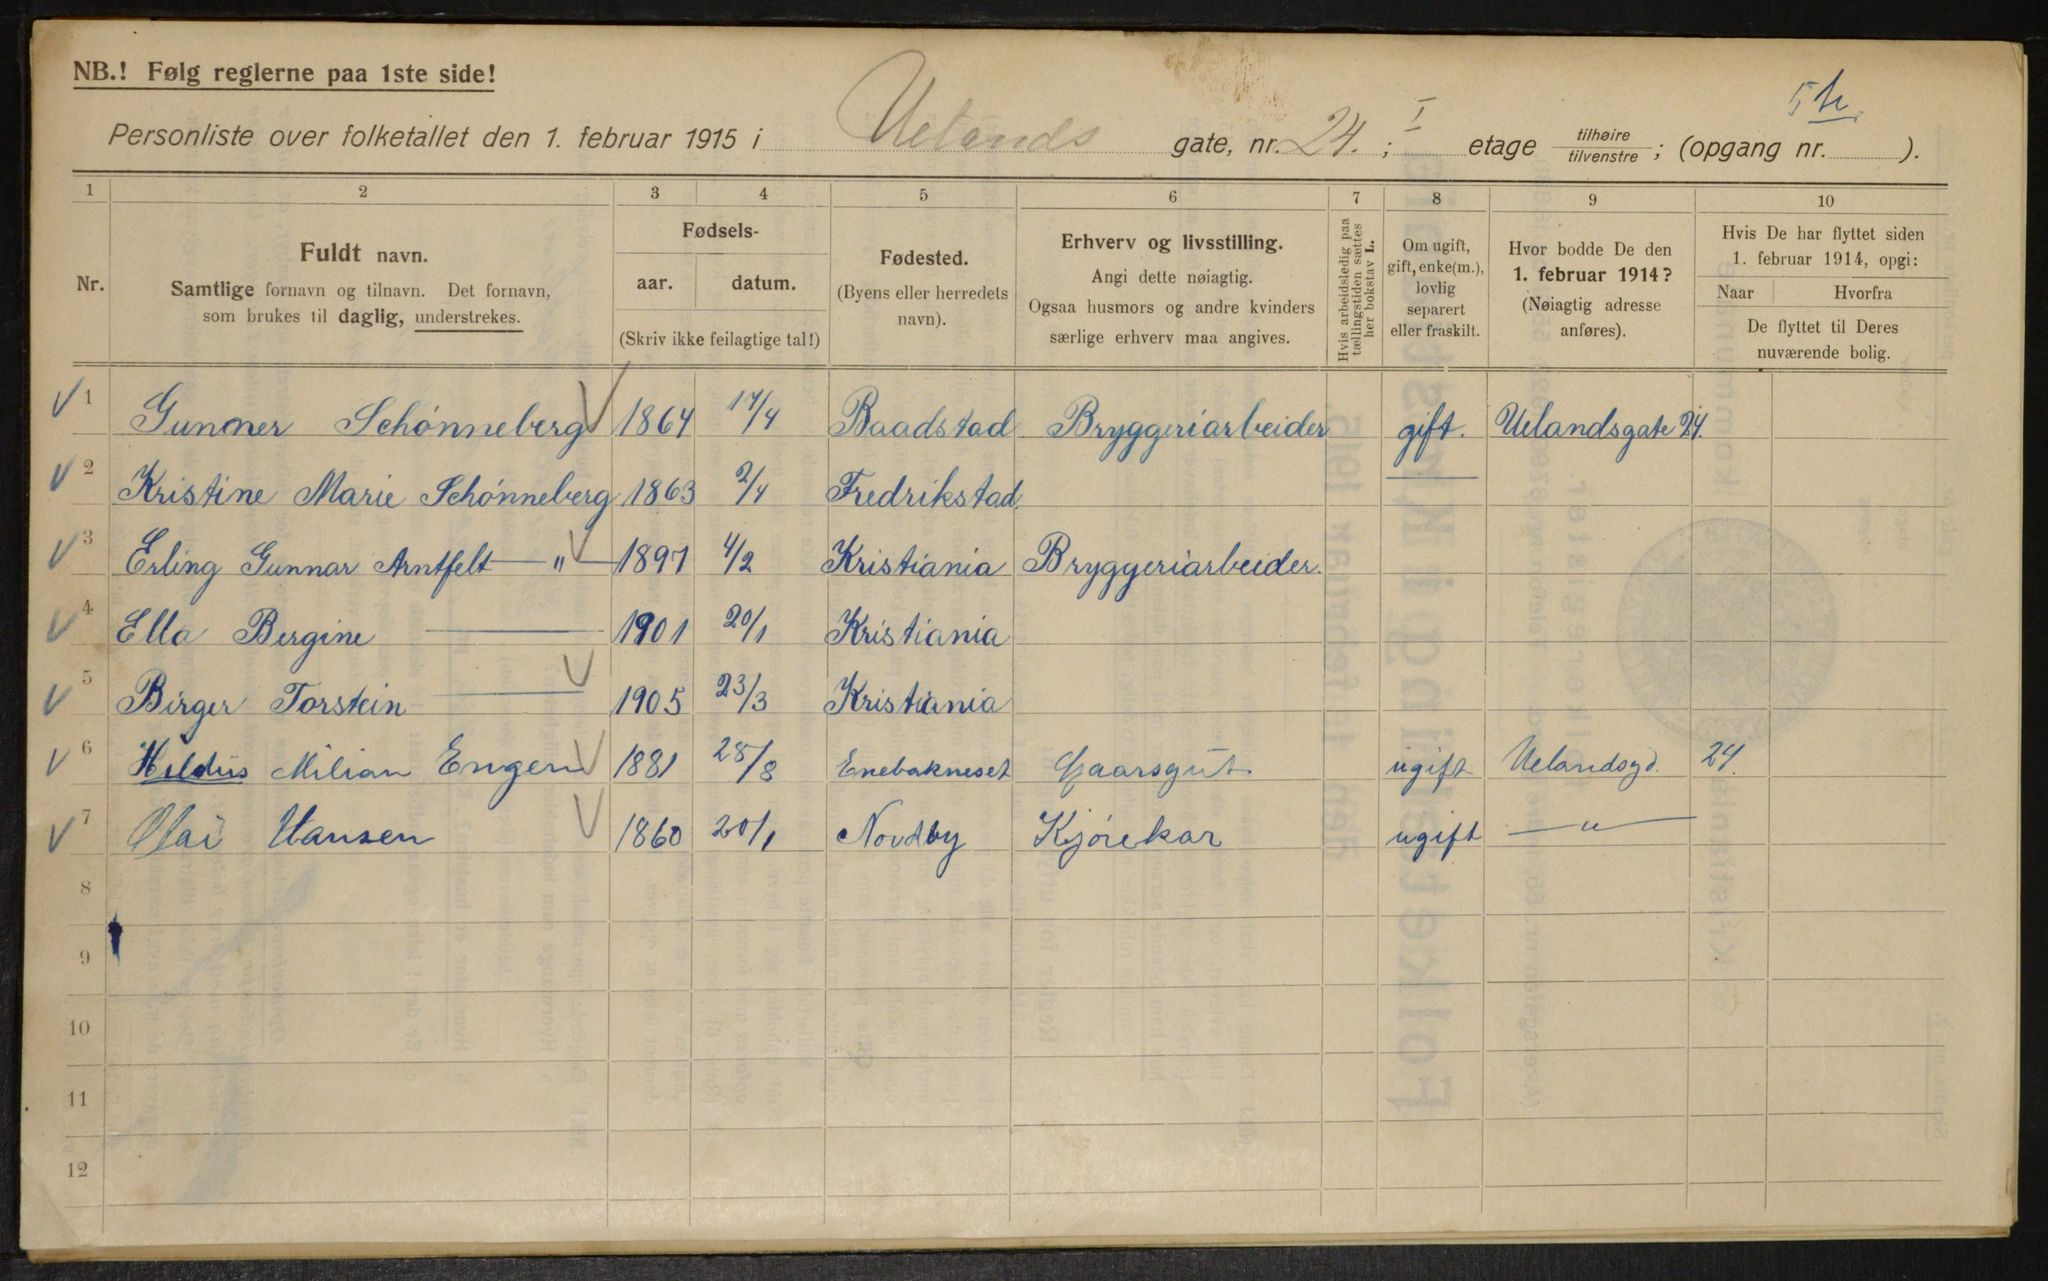 NB.! Følg reglerne paa 1ste side!
5 h
Personliste over folketallet den 1. februar 1915 i Uelands gate, nr. 24. ; I etage tilhøire tilvenstre ; (opgang nr. ).
1 2 3 4 5 6 7 8 9 10
Nr.
Fuldt navn.
Samtlige fornavn og tilnavn. Det fornavn,
som brukes til daglig, understrekes.
Fødsels-
aar. datum.
(Skriv ikke feilagtige tal!)
Fødested.
(Byens eller herredets
navn).
Erhverv og livsstilling.
Angi dette nøiagtig.
Ogsaa husmors og andre kvinders
særlige erhverv maa angives.
Hvis arbeidsledig paa
tællingstiden sættes
her bokstav L.
Om ugift,
gift, enke(m.),
lovlig
separert
eller fraskilt.
Hvor bodde De den
1. februar 1914?
(Nøiagtig adresse
anføres).
Hvis De har flyttet siden
1. februar 1914, opgi:
Naar Hvorfra
De flyttet til Deres
nuværende bolig.
1 Gunner Schønneberg 1864 17/4 Baadstad Bryggeriarbeider gift. Uelandsgate 24.
2 Kristine Marie Schønneberg 1863 2/4 Fredrikstad. —
3 Erling Gunnar Arntfelt — " — 1897 4/2 Kristiania Bryggeriarbeider.
4 Ella Bergine — 1901 20/1 Kristiania
5 Birger Torstein — 1905 23/3 Kristiania
6 Hildus Milian Engen 1881 28/8 Enebakneset Gaarsgut ugift Uelandsgd. 24.
7 Olai Hansen 1860 20/1 Nordby Kjørekar ugift — " —
8
9
10
11
12